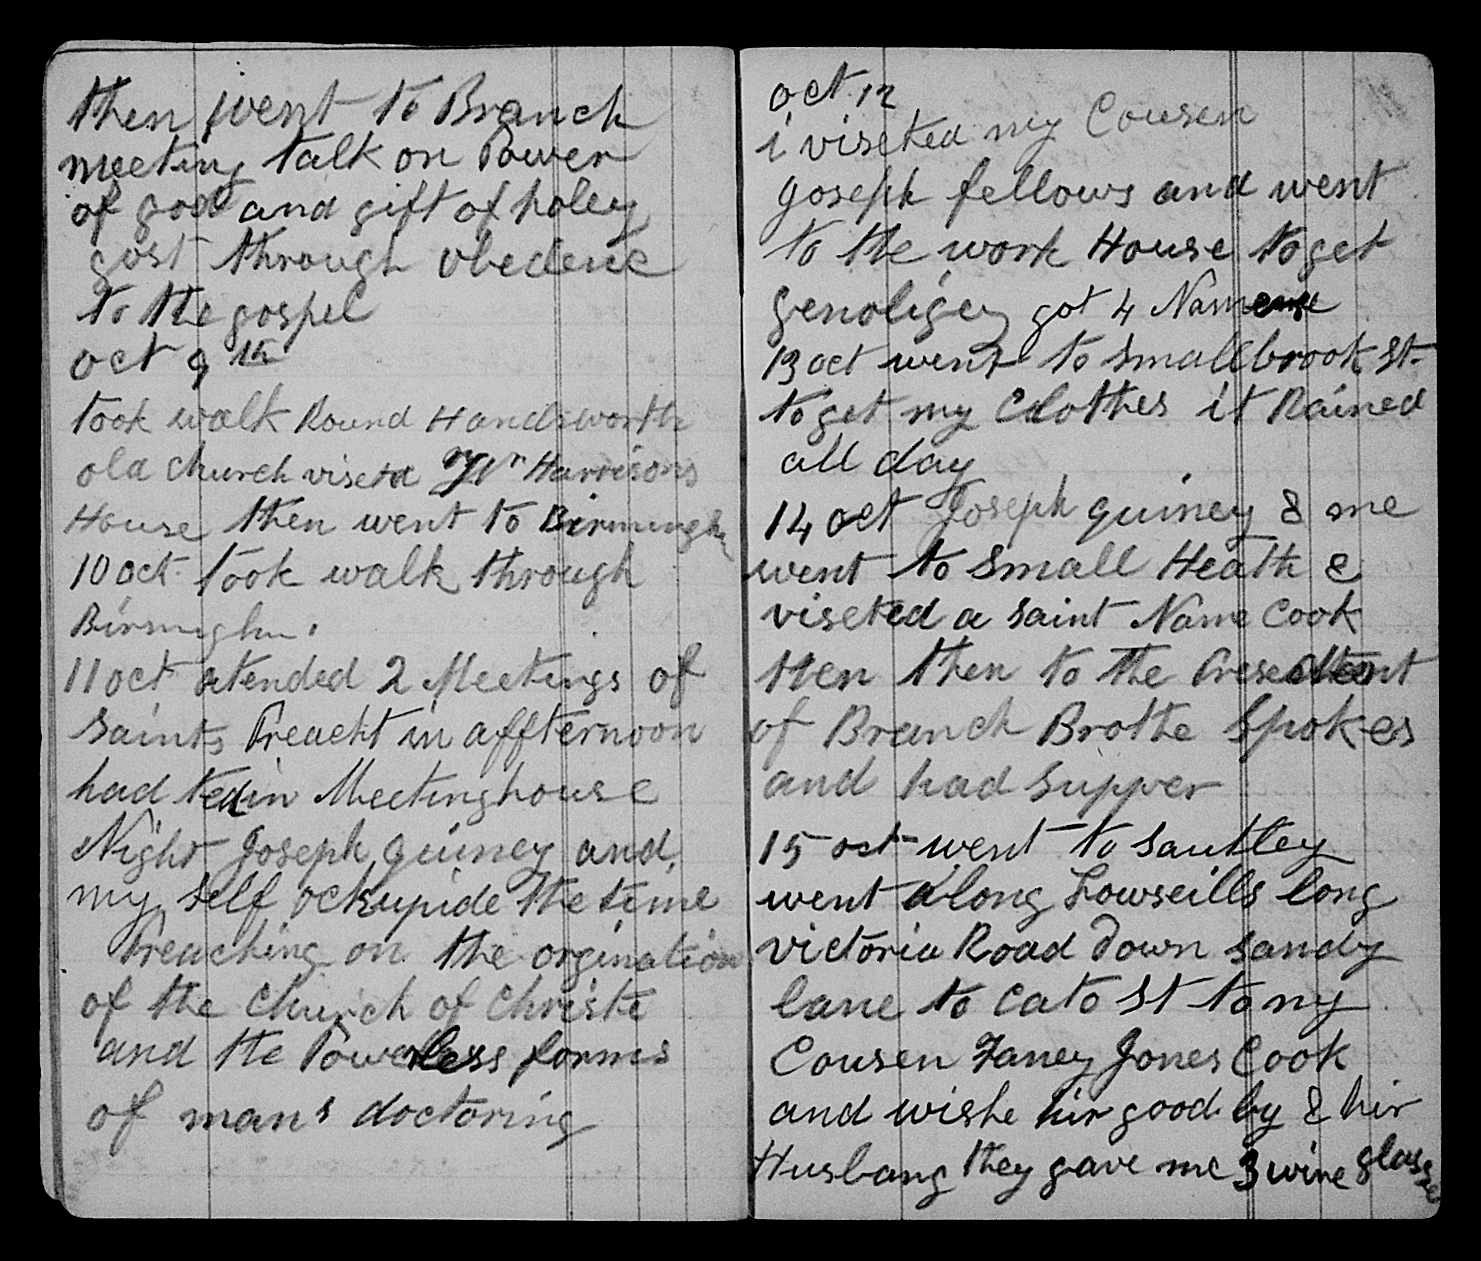 then went to Branch
meeting talk on Power
of god and gift of holey
gost through obedene
to the gospel
oct 9 th
took walk Round Handsworth
old church viseted Wm Harrisons
House then went to Birmingham
10 oct took walk through
Birmighm.
11 oct atended 2 Meetings of
saints Preacht in affternoon
had tea in Meetinghouse
Night Joseph quiney and
my self ockupide the time
Preaching on the orgination
of the church of Christe
and the Powerless forms
of man's doctoring
oct 12
i viseted my Cousen
Joseph fellows and went
to the work House to get
genoligey got 4 Name
13 oct went to Smallbrook St
to get my Clothes it Rained
all day
14 oct Joseph quiney & me
went to Small Heath &
viseted a saint Name Cook
then then to the Presedent
of Branch Brothe Spokes
and had supper
15 oct went to Sautley
went along long
victoria Road down Sandy
lane to Cato St to my
Cousen Faney Jones Cook
and wishe hir good by & hir
Husbang they gave me 3 wine glasse